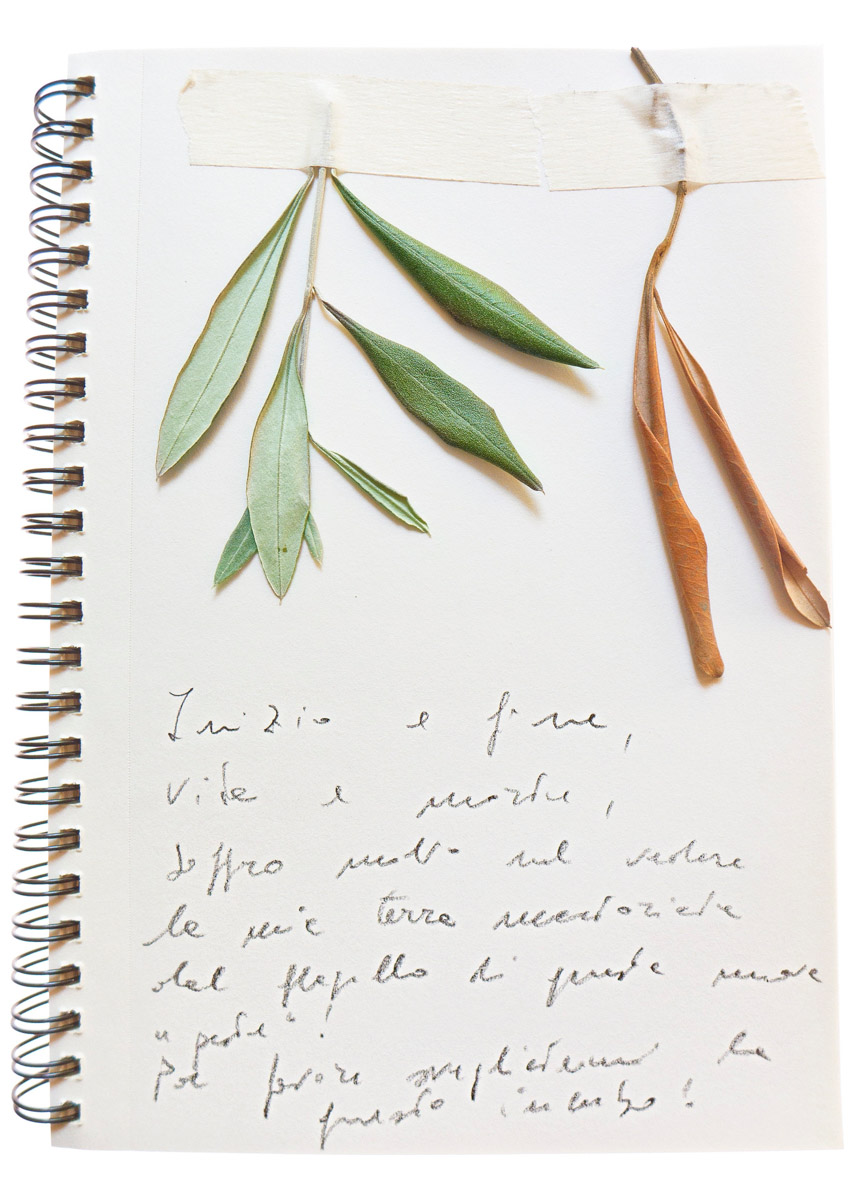 Inizio e fine,
vita e morte,
Soffro molto nel vedere
la mia terra martoriata
dal flagello di questa nuova
"peste"!
Per favore svegliatemi da
questo incubo!